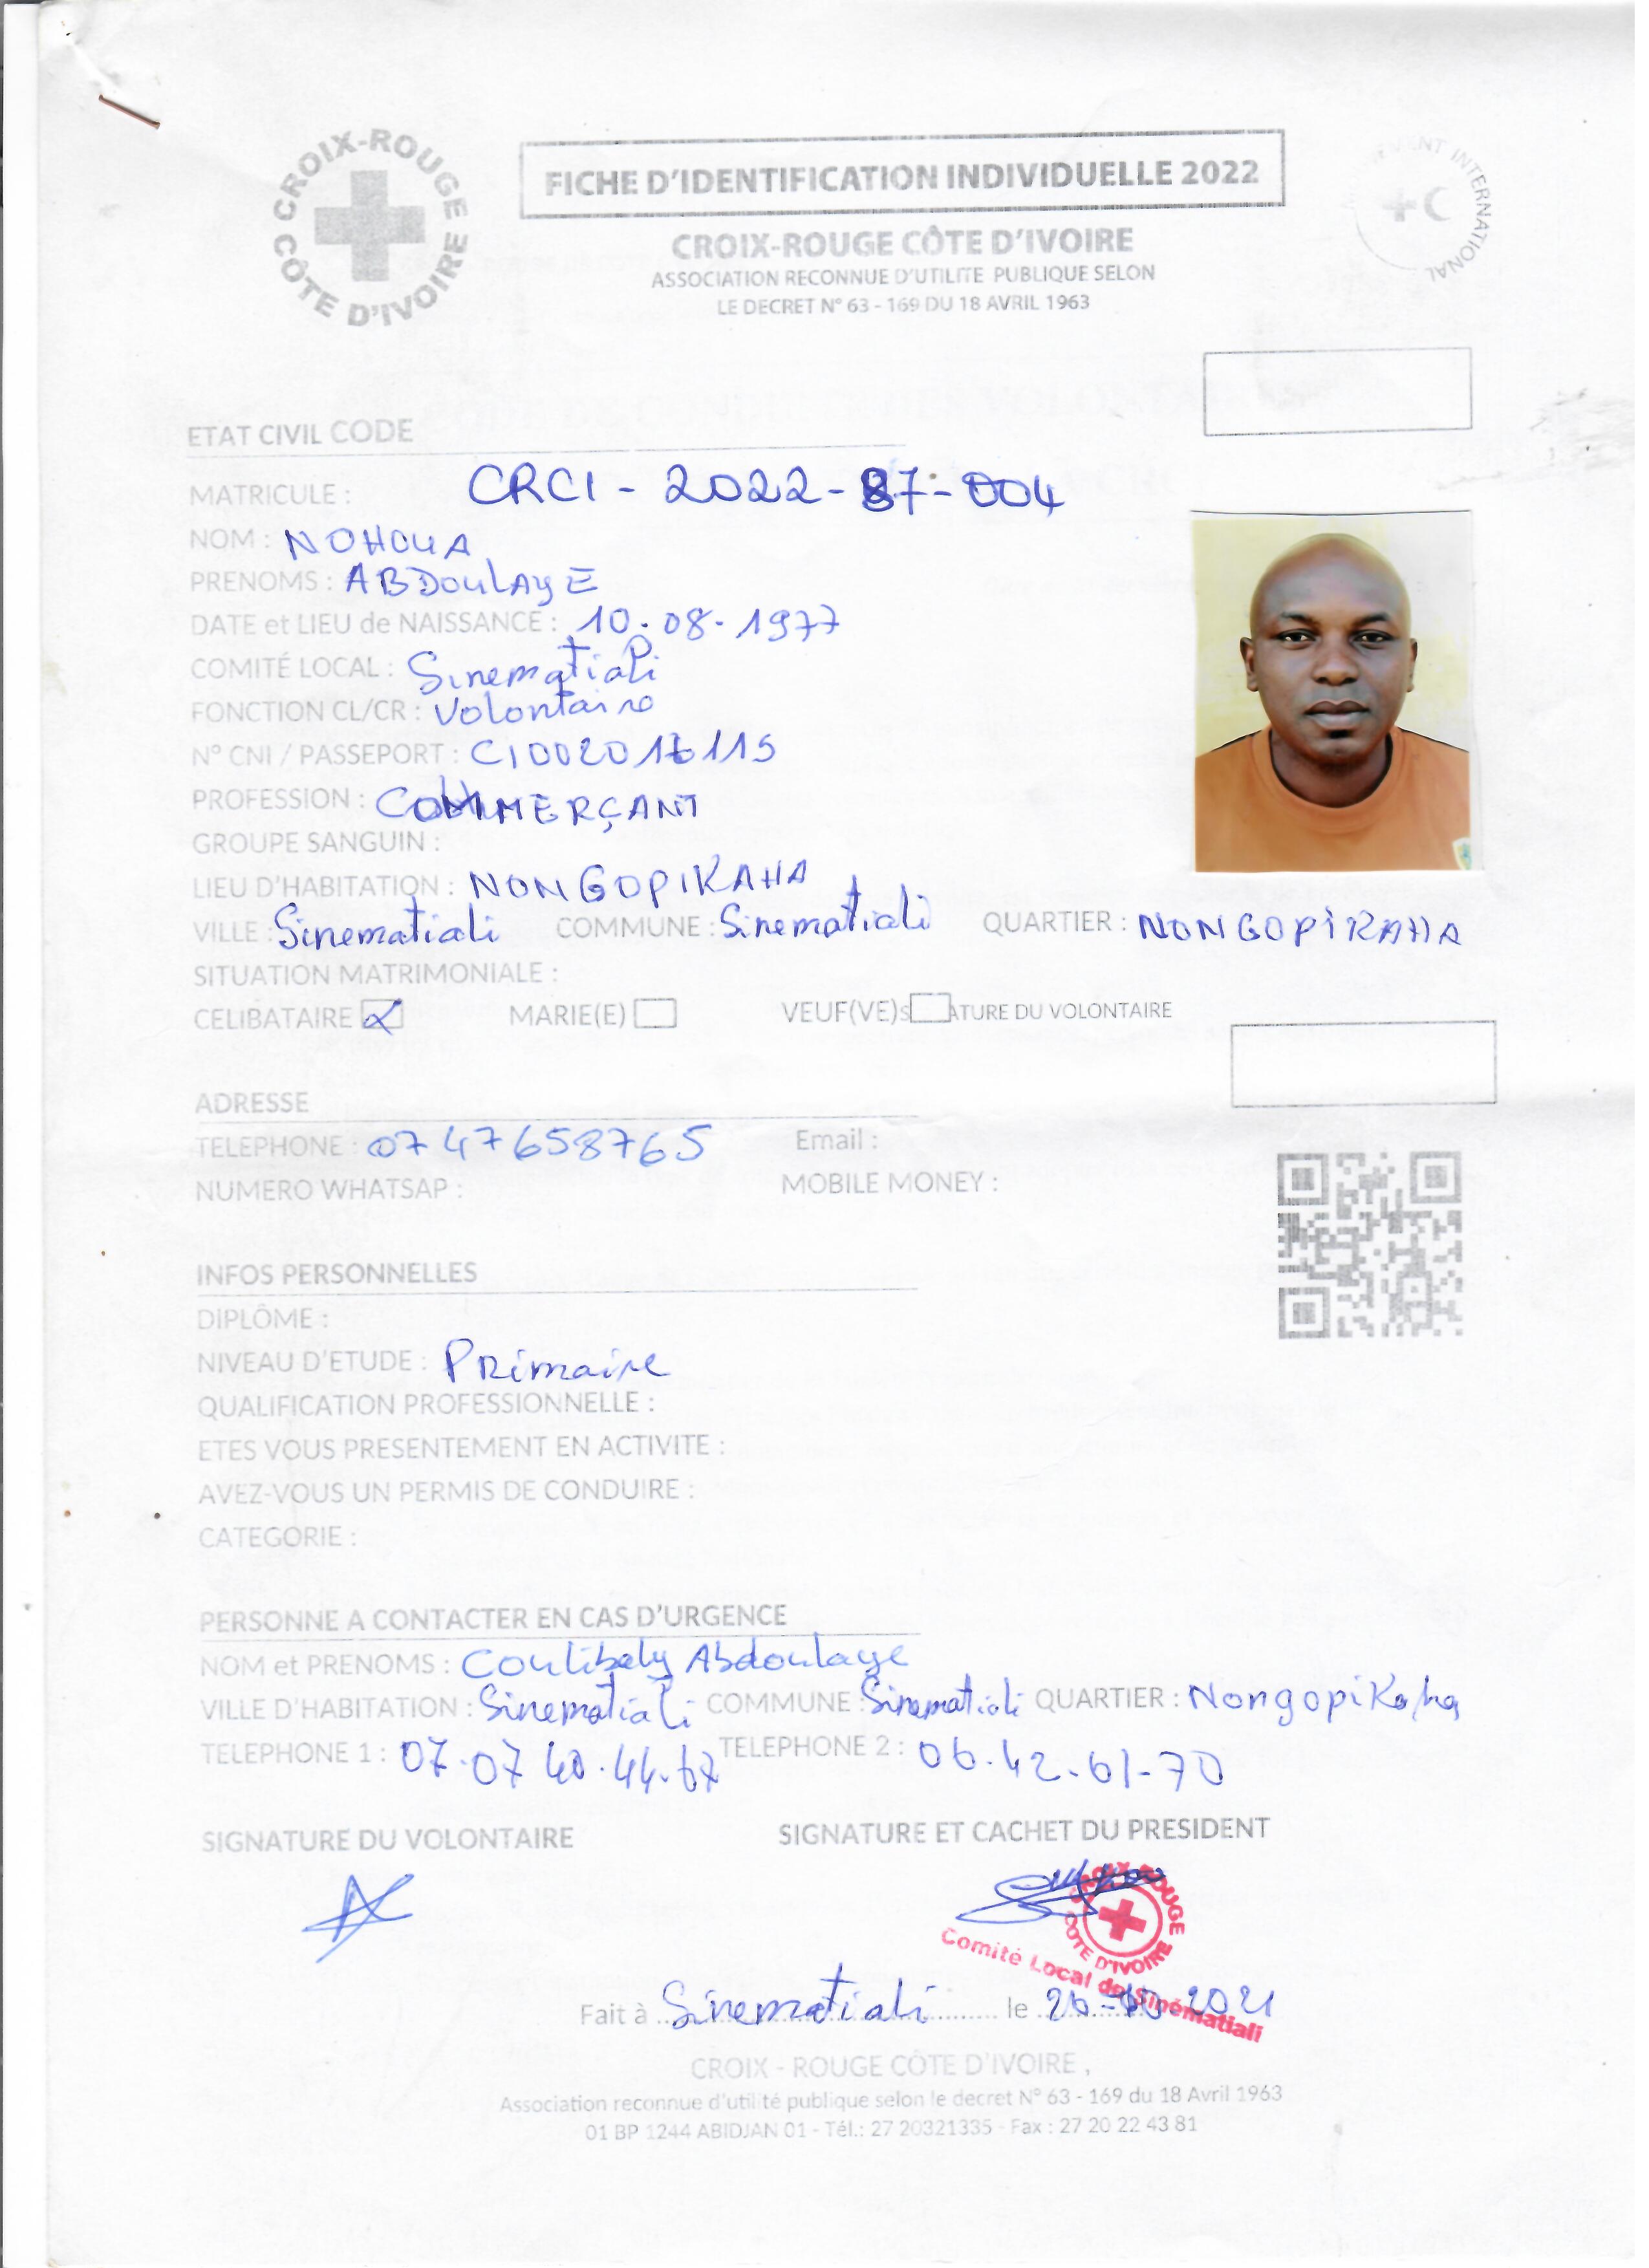 CROIX-ROUGE CÔTE D'IVOIRE
FICHE D'IDENTIFICATION INDIVIDUELLE 2022
INTERNATIONAL
CROIX-ROUGE CÔTE D'IVOIRE
ASSOCIATION RECONNUE D'UTILITE PUBLIQUE SELON
LE DECRET N° 63 - 169 DU 18 AVRIL 1963
ETAT CIVIL CODE
MATRICULE : CRCI - 2022 - 87 - 004
NOM : NOHOUA
PRENOMS : ABDoulAyE
DATE et LIEU de NAISSANCE : 10-08-1977
COMITÉ LOCAL : Sinematiali
FONCTION CL/CR : Volontaire
N° CNI / PASSEPORT : CI002016115
PROFESSION : COMMERÇANT
GROUPE SANGUIN :
LIEU D'HABITATION : NONGOPIKAHA
VILLE : Sinematiali COMMUNE : Sinematiali QUARTIER : NONGOPIKAHA
SITUATION MATRIMONIALE :
CELIBATAIRE MARIE(E) VEUF(VE) ATURE DU VOLONTAIRE
ADRESSE
TELEPHONE : 0747658765 Email :
NUMERO WHATSAP : MOBILE MONEY :
INFOS PERSONNELLES
DIPLÔME :
NIVEAU D'ETUDE : Primaire
QUALIFICATION PROFESSIONNELLE :
ETES VOUS PRESENTEMENT EN ACTIVITE :
AVEZ-VOUS UN PERMIS DE CONDUIRE :
CATEGORIE :
PERSONNE A CONTACTER EN CAS D'URGENCE
NOM et PRENOMS : Coulibaly Abdoulaye
VILLE D'HABITATION : Sinematiali COMMUNE : Sinematiali QUARTIER : Nongopikaha
TELEPHONE 1 : 07-07 40-44- TELEPHONE 2 : 06-42-61-70
SIGNATURE DU VOLONTAIRE SIGNATURE ET CACHET DU PRESIDENT
CROIX-ROUGE CÔTE D'IVOIRE
Comité Local de Sinématiali
Fait à Sinematiali le 26-10-2021
CROIX - ROUGE CÔTE D'IVOIRE ,
Association reconnue d'utilité publique selon le decret N° 63 - 169 du 18 Avril 1963
01 BP 1244 ABIDJAN 01 - Tél.: 27 20321335 - Fax : 27 20 22 43 81